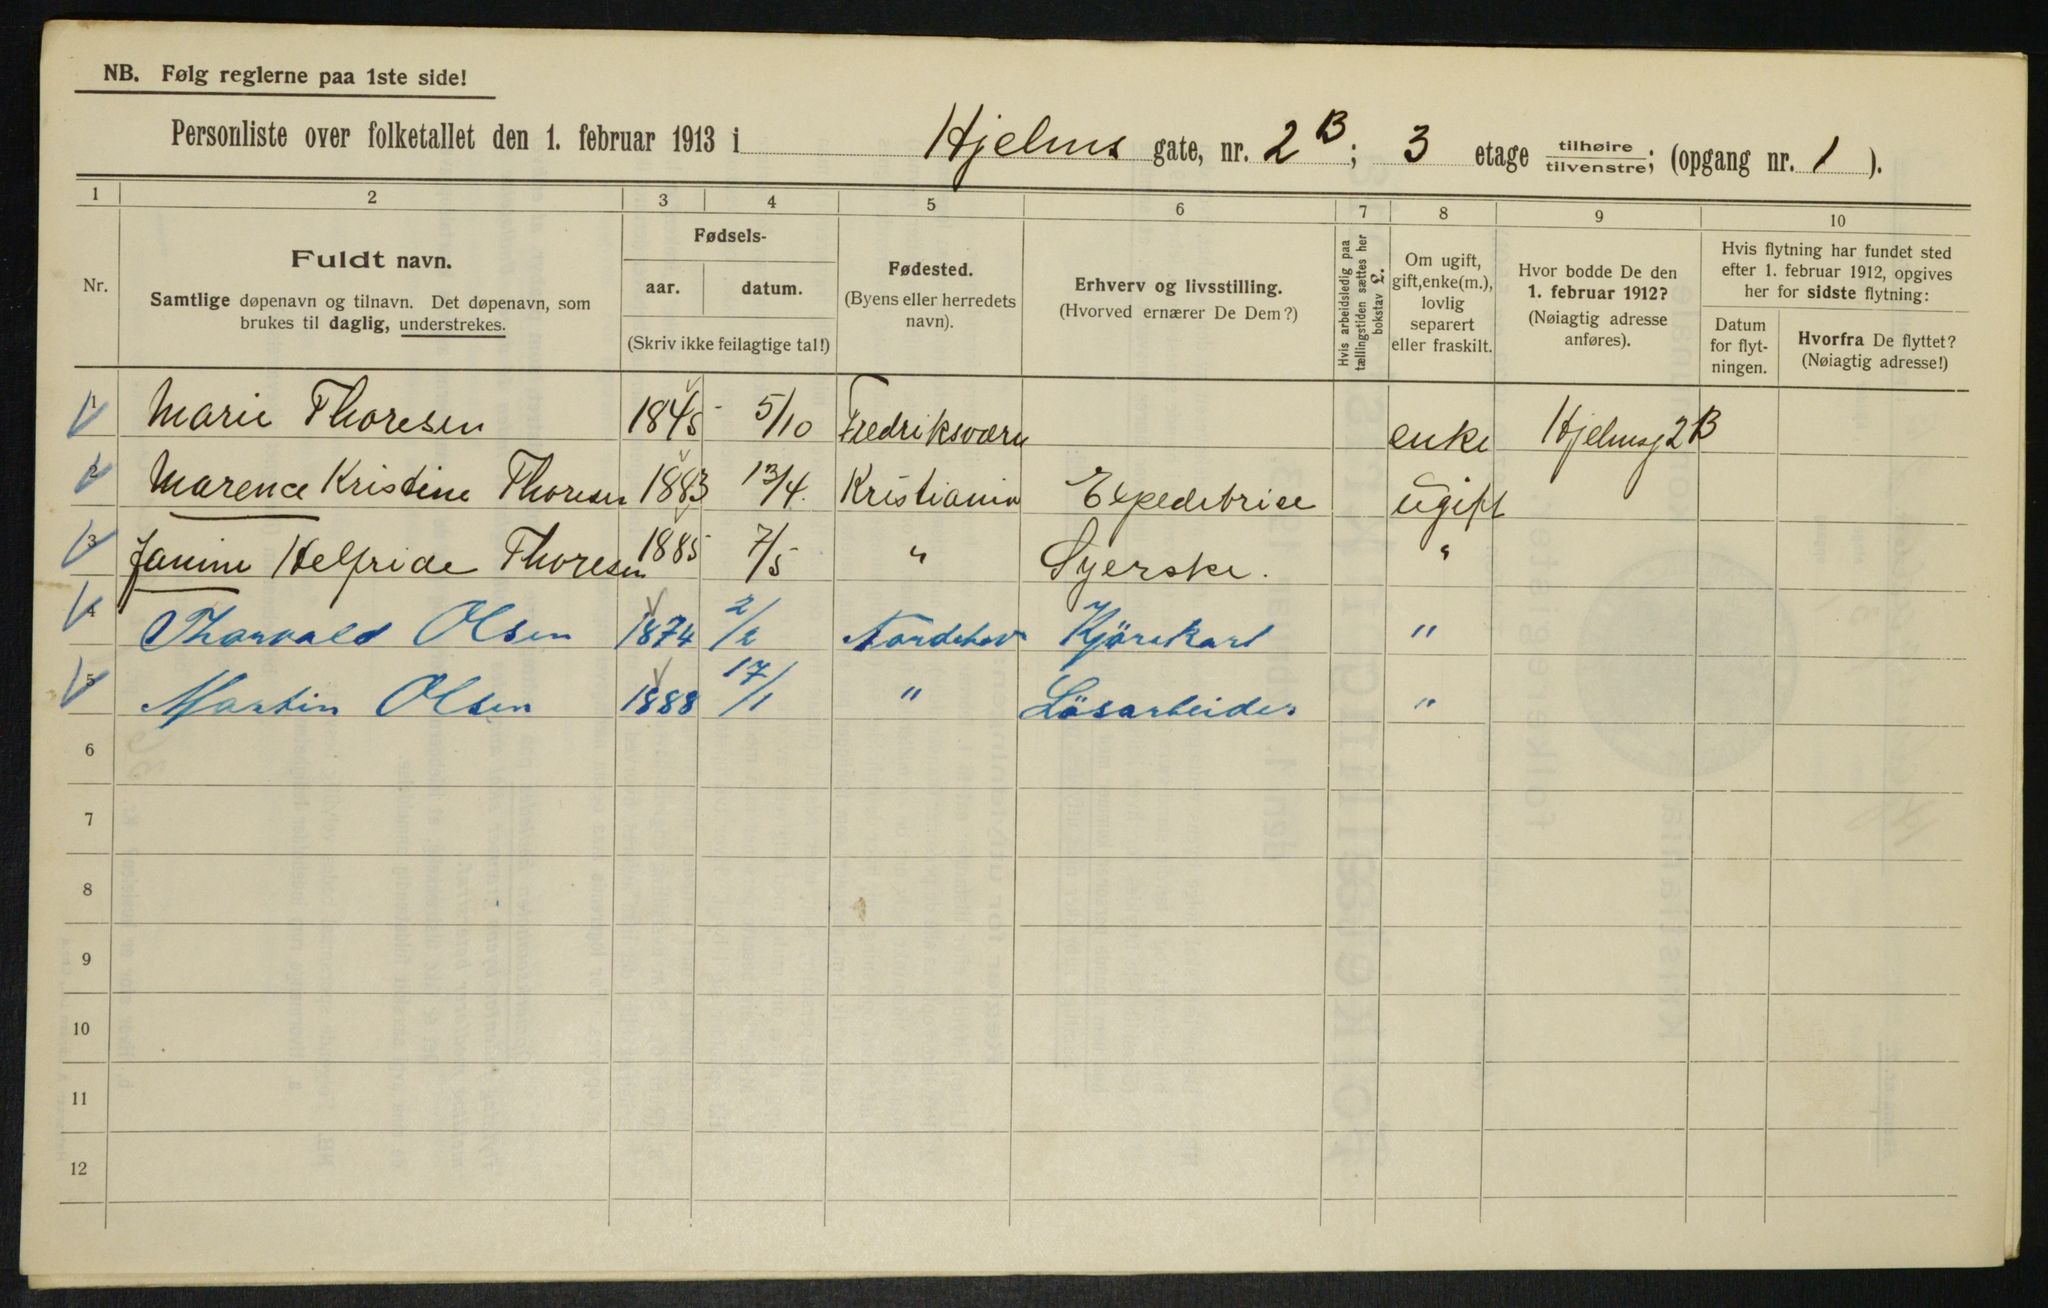 NB. Følg reglerne paa 1ste side!
Personliste over folketallet den 1. februar 1913 i Hjelms gate, nr. 2 B; 3 etage tilhøire tilvenstre; (opgang nr. 1 ).
1 2 3 4 5 6 7 8 9 10
Nr.
Fuldt navn.
Samtlige døpenavn og tilnavn. Det døpenavn, som
brukes til daglig, understrekes.
Fødsels-
aar. datum.
(Skriv ikke feilagtige tal!)
Fødested.
(Byens eller herredets
navn).
Erhverv og livsstilling.
(Hvorved ernærer De Dem?)
Hvis arbeidsledig paa
tællingstiden sættes her
bokstav L.
Om ugift,
gift, enke(m.),
lovlig
separert
eller fraskilt.
Hvor bodde De den
1. februar 1912?
(Nøiagtig adresse
anføres).
Hvis flytning har fundet sted
efter 1. februar 1912, opgives
her for sidste flytning:
Datum
for flyt-
ningen.
Hvorfra De flyttet?
(Nøiagtig adresse!)
1 Marie Thoresen 1845 5/10 Fredriksværn enke Hjelmsg 2 B
2 Marence Kristine Thoresen 1883 13/4. Kristiania Expeditrice ugift
3 Janine Helfride Thoresen 1885 7/5 " Syerske. "
4 Thorvald Olsen 1874 2/2 Nordehov Kjörekarl "
5 Martin Olsen 1888 17/1 " Lösarbeider "
6
7
8
9
10
11
12